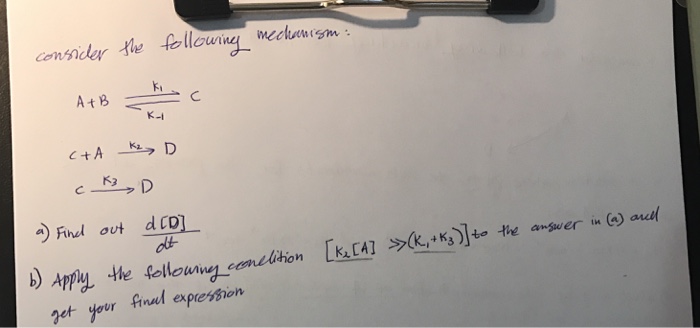 consider the following mechanism:
A+B ⇌ C
K1
K-1
C+A K2→ D
C K3→ D
a) Find out d[D]/dt
b) Apply the following condition [K2[A] >>(K,+K3)] to the answer in (a) and
get your final expression